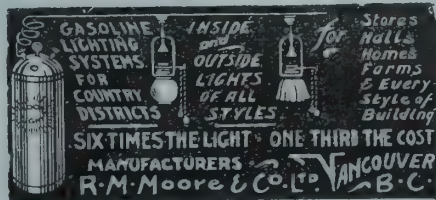 GASOLINE
LIGHTING
SYSTEMS
FOR
COUNTRY
DISTRICTS
INSIDE
and
OUTSIDE
LIGHTS
OF ALL
STYLES
for
Stores
Halls
Homes
Farms
& Every
Style of
Building
SIX TIMES THE LIGHT - ONE THIRD THE COST
MANUFACTURERS
R. M. Moore & Co. LTD. VANCOUVER
B. C.